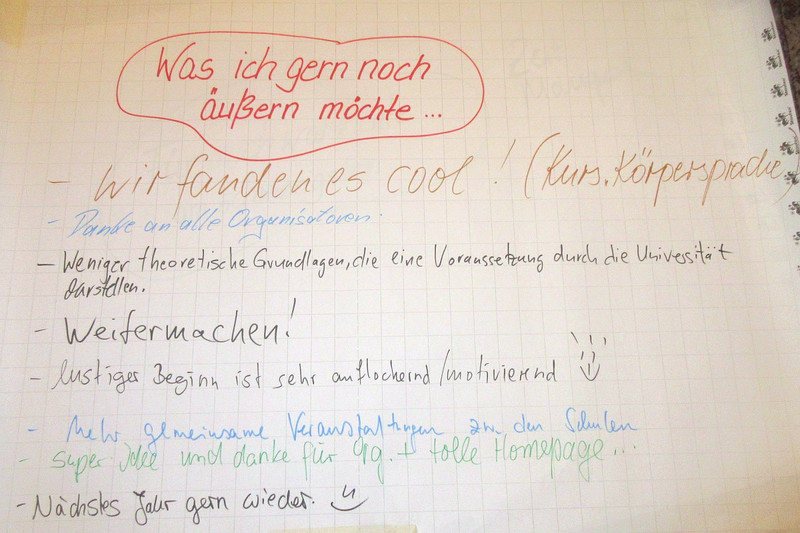 Was ich gern noch
äußern möchte...
- Wir fanden es cool! (Kurs. Körpersprache)
- Danke an alle Organisatoren.
- Weniger theoretische Grundlagen, die eine Voraussetzung durch die Universität
darstellen.
- Weitermachen!
- lustiger Beginn ist sehr auflockernd/motivierend
- Mehr gemeinsame Veranstaltungen zw. den Schulen
- super Idee und danke für Org. + tolle Homepage...
- Nächstes Jahr gern wieder.